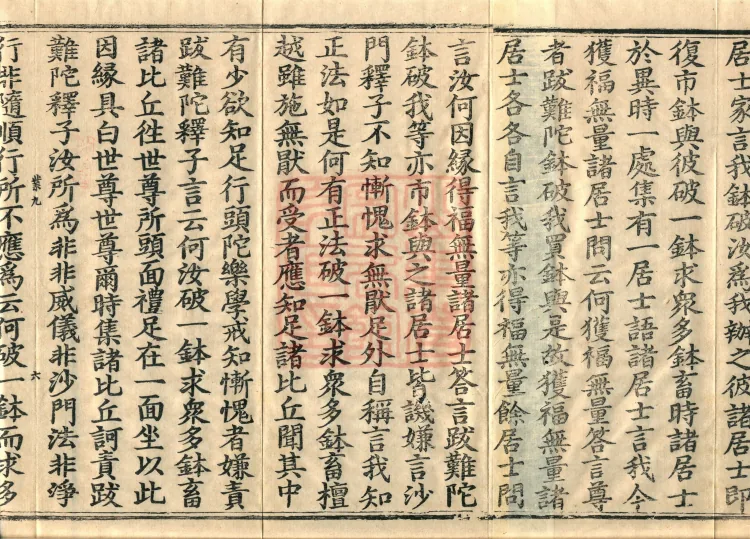 居士家言我鉢破汝為我辦之彼諸居士即
復市鉢與彼破一鉢求衆多鉢畜時諸居士
於異時一處集有一居士語諸居士言我今
獲福無量諸居士問云何獲福無量答言尊
者跋難陀鉢破我買鉢與是故獲福無量諸
居士各各自言我等亦得福無量餘居士問
言汝何因緣得福無量諸居士答言跋難陀
鉢破我等亦市鉢與之諸居士皆譏嫌言沙
門釋子不知慚愧求無猒足外自稱言我知
正法如是何有正法破一鉢求衆多鉢畜檀
越雖施無猒而受者應知足諸比丘聞其中
有少欲知足行頭陀樂學戒知慚愧者嫌責
跋難陀釋子言云何汝破一鉢求衆多鉢畜
諸比丘徃世尊所頭面禮足在一面坐以此
因緣具白世尊世尊爾時集諸比丘訶責跋
難陀釋子汝所為非非威儀非沙門法非淨
業九 六
行非隨順行所不應為云何破一鉢而求多